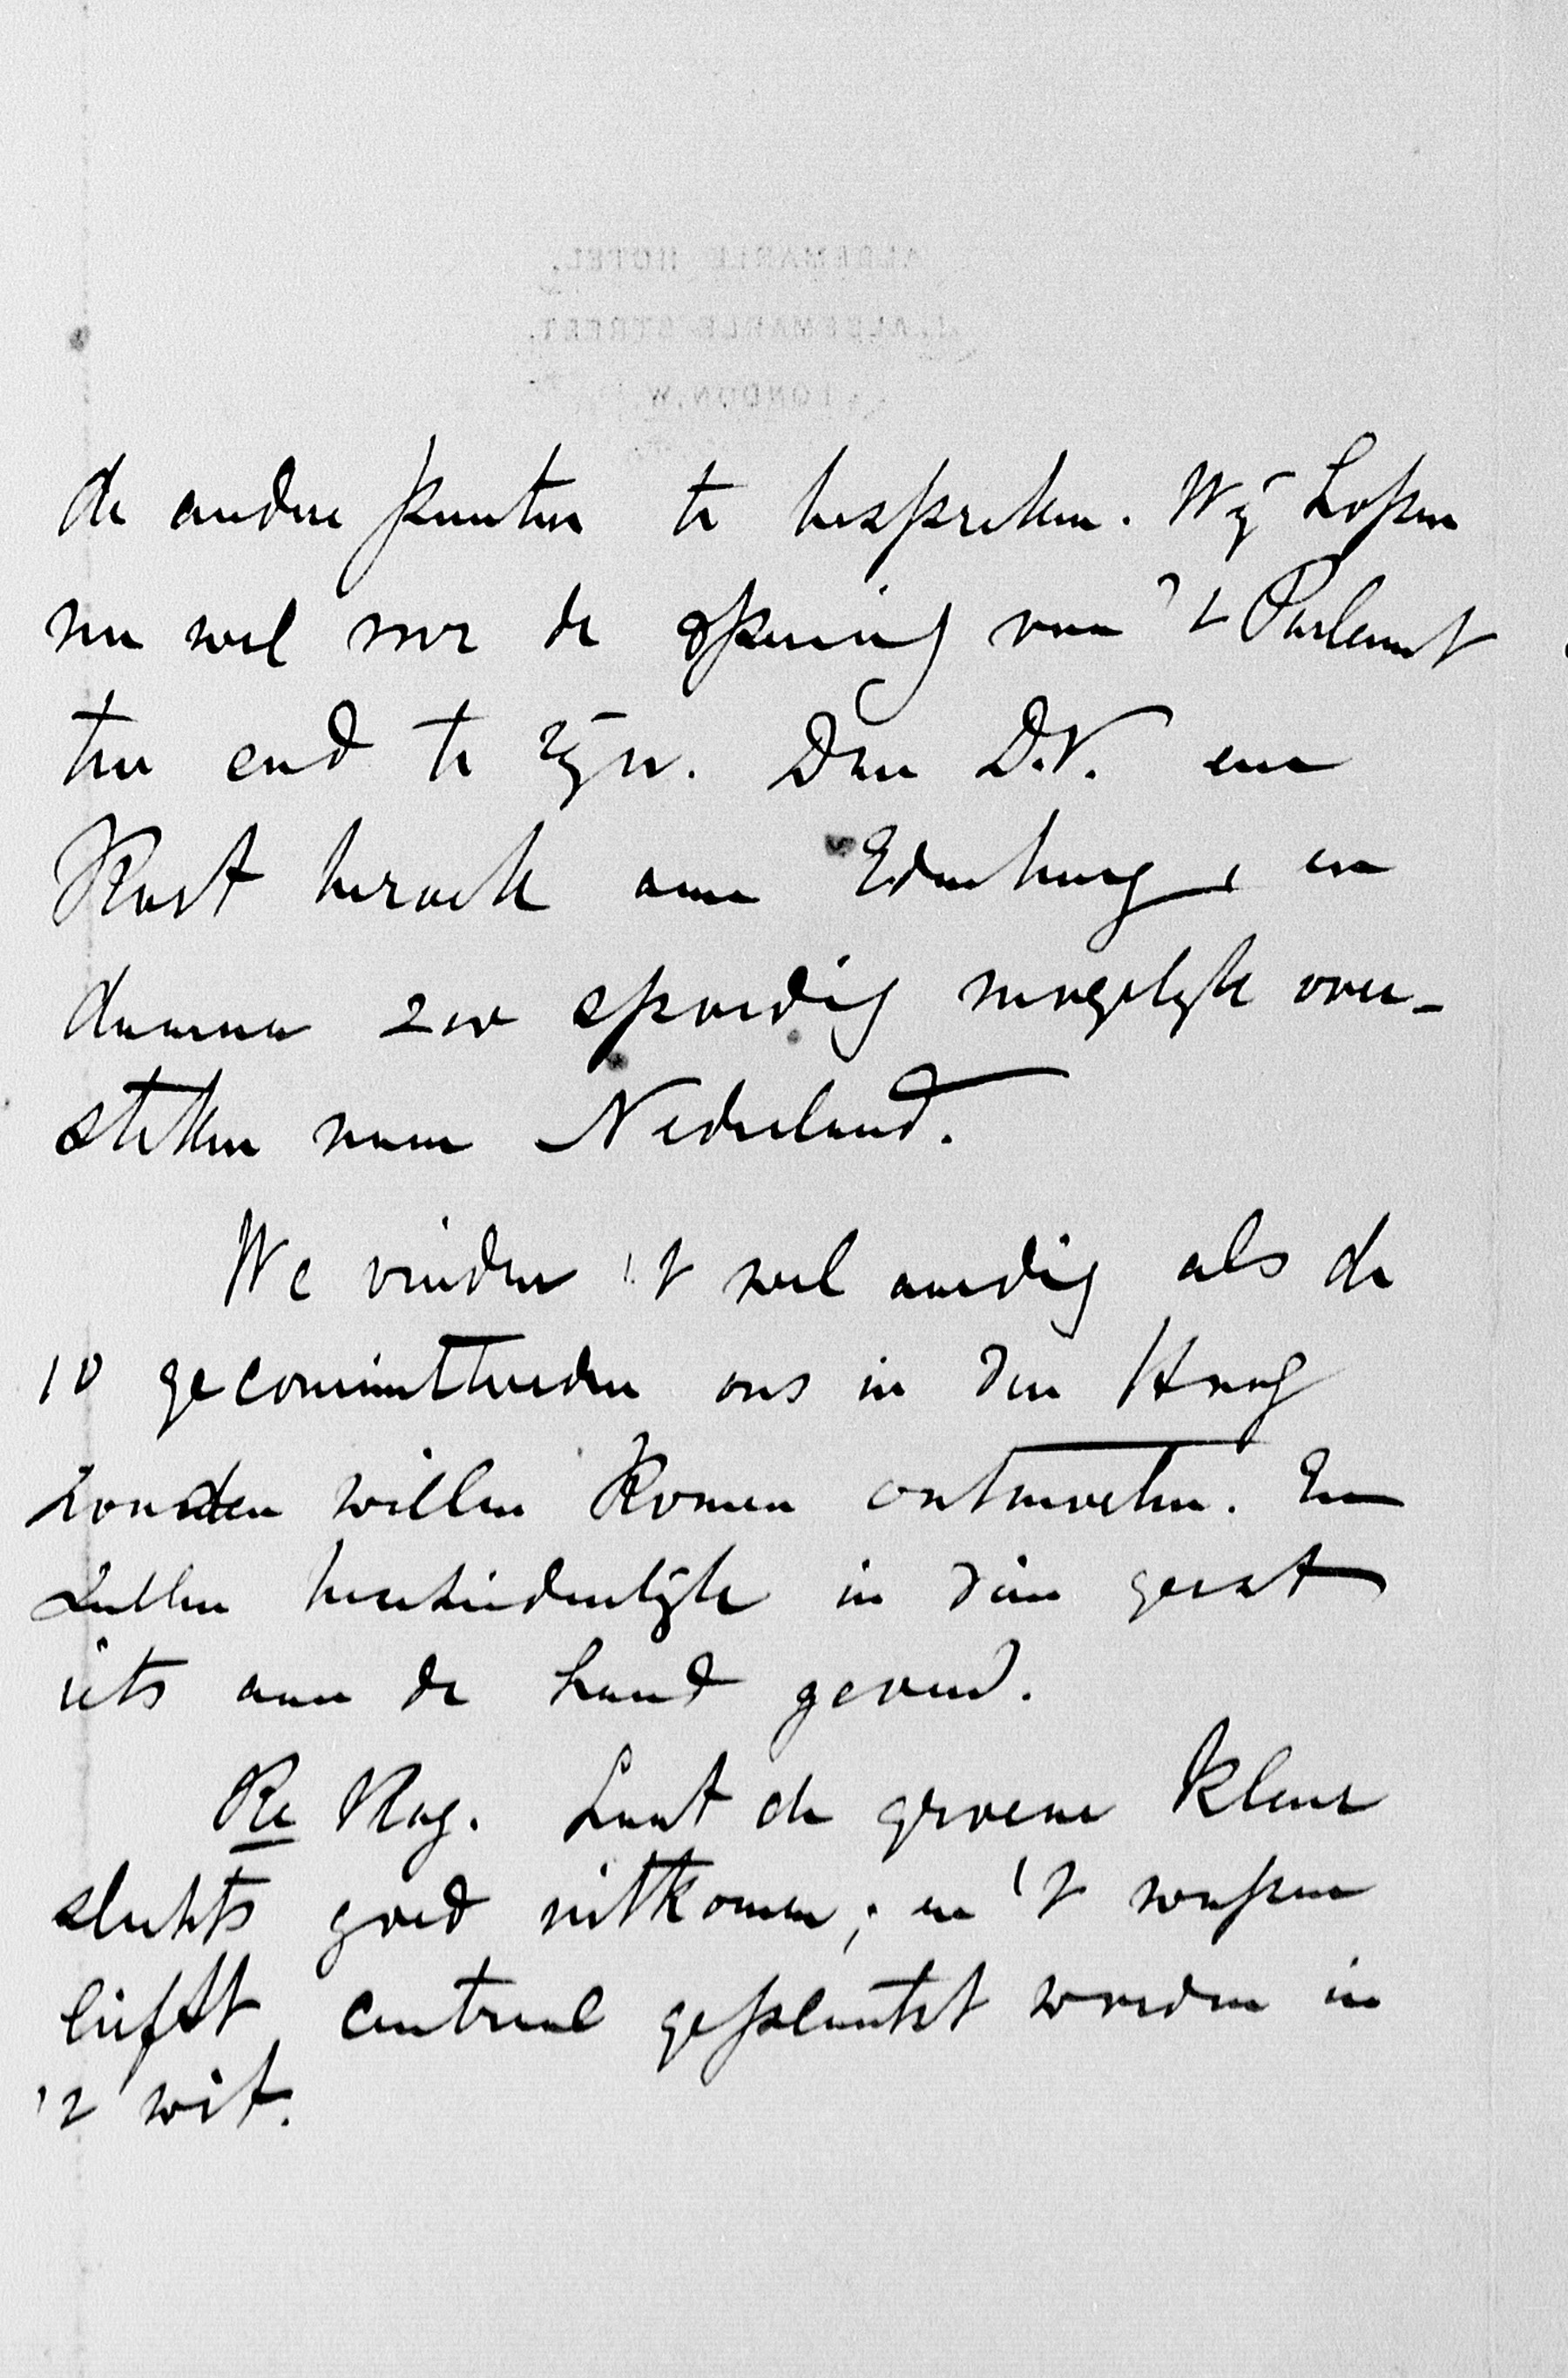 ALBEMARLE HOTEL.
1, ALBEMARLE STREET.
LONDON, W.
de andere punten te bespreken. Wij hopen
nu wel voor de opening van 't Parlement
ten eind te zijn. Dan D.V. een
Kort bezoek aan Edinburg, en
daarna zoo spoedig mogelijk over-
steken naar Nederland.
We vinden 't wel aardig als de
10 gecommitteerden ons in den Haag
zouden willen Komen ontmoeten. En
zullen bescheidenlijk in dien geest
iets aan de hand geven.
Re Vlag. Laat de groene Kleur
slechts goed uitkomen; en 't wapen
liefst centraal geplaatst worden in
't wit.